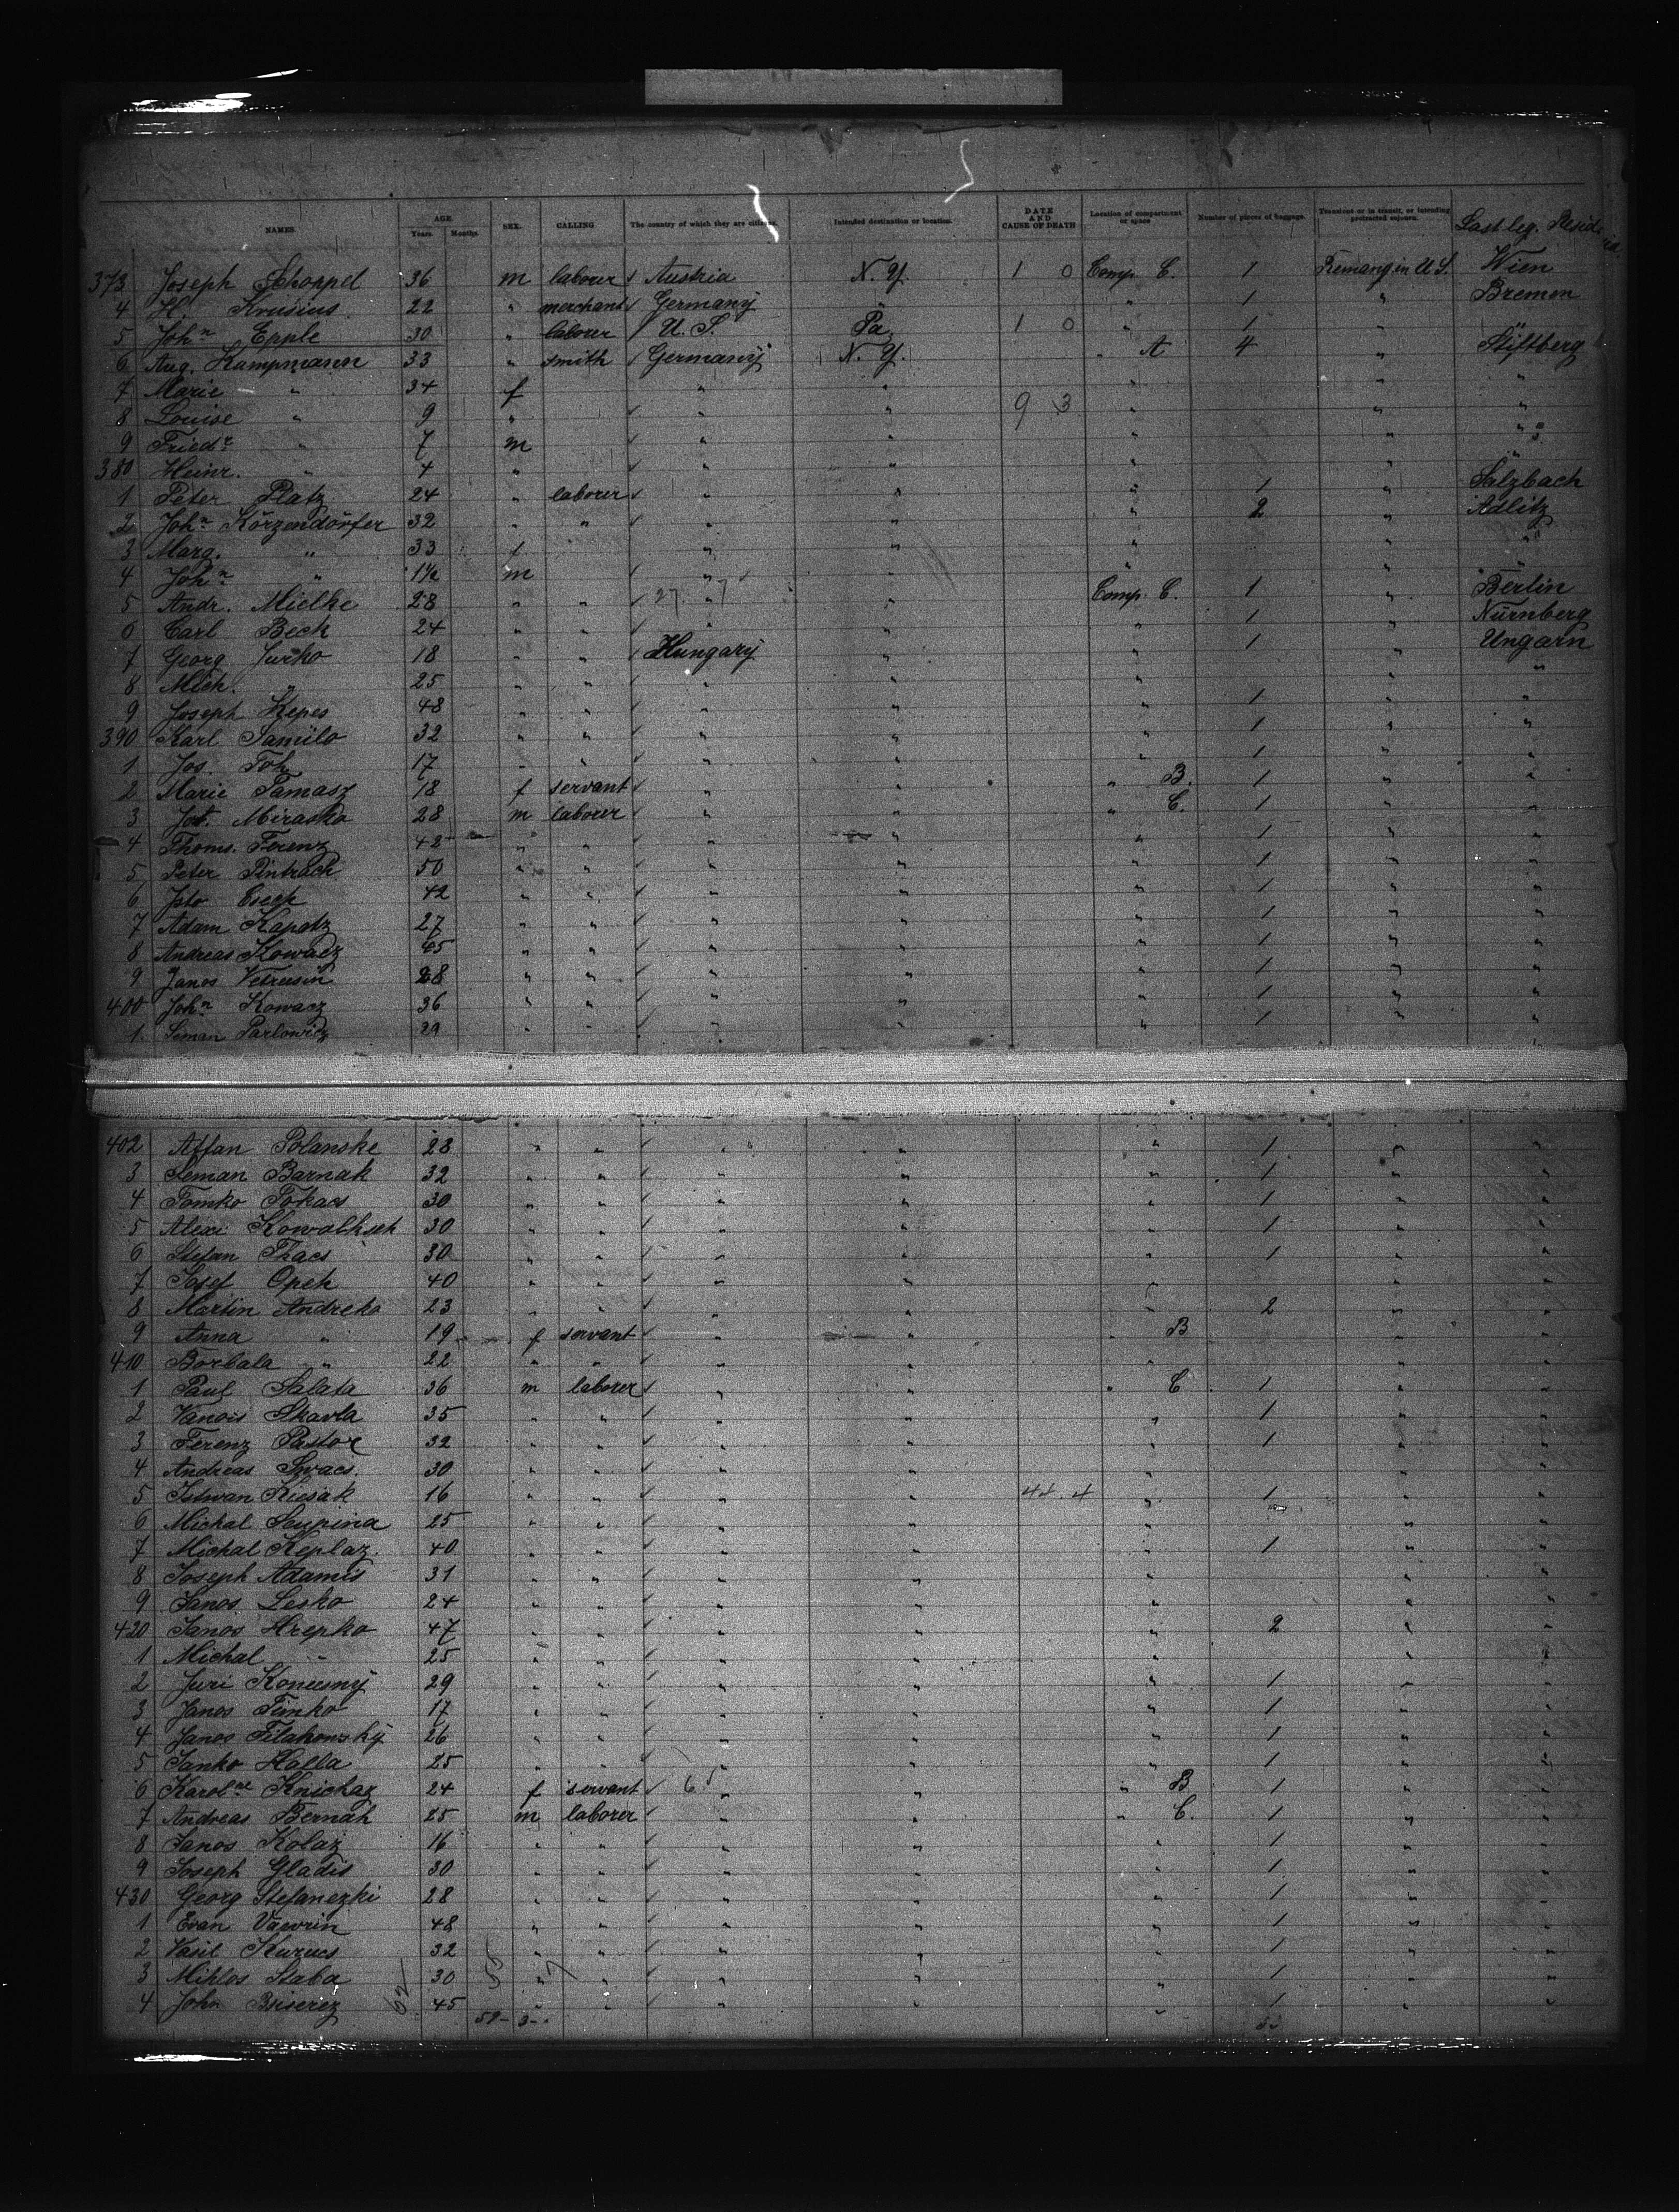 NAMES AGE Years. Months. SEX. CALLING The country of which they are citizens. Intended destination or location. DATE AND CAUSE OF DEATH Location of compartment or space Number of pieces of baggage. Transient or in transit, or intending protracted sojourn. Last leg. Resid
373 Joseph Schoppel 36 m laborer Austria N. Y. 1 0 Comp. C. 1 Remang in U S. Wien
4 H. Krusius 22 " merchant Germany " " 1 " Bremen
5 Johⁿ Epple 30 " laborer U. S. Pa 1 0 " 1 " "
6 Aug. Kampmann 33 " smith Germany N. Y. " A 4 " Stiftberg
7 Marie " 34 f " " " " "
8 Louise " 9 " " " 9 3 " " "
9 Friedʳ " 7 m " " " " "
380 Heinr. " 4 " " " " " "
1 Peter Platz 24 " laborer " " " 1 " Salzbach
2 Johⁿ Körzendörfer 32 " " " " " 2 " Adlitz
3 Marg. " 33 f " " " " "
4 Johⁿ " 1½ m " " " " "
5 Andr. Mielke 28 " " 27 " " Comp. C. 1 " Berlin
6 Carl Beck 24 " " " " " 1 " Nürnberg
7 Georg Jurko 18 " " Hungary " " 1 " Ungarn
8 Mich. " 25 " " " " " " "
9 Joseph Kepes 48 " " " " " 1 " "
390 Karl Samilo 32 " " " " " 1 " "
1 Jos. Toh 17 " " " " " 1 " "
2 Marie Tamasz 18 f servant " " " B. 1 " "
3 Mirasko 28 m laborer " " " C. 1 " "
4 Thoms. Ferenz 42 " " " " " 1 " "
5 Peter Pintrach 50 " " " " " 1 " "
6 42 " " " " " 1 " "
7 Adam Kapatz 27 " " " " " 1 " "
8 Andreas Kowacz 45 " " " " " 1 " "
9 Janos Vetrusin 28 " " " " " 1 " "
400 Johⁿ Kowacz 36 " " " " " 1 " "
1 Seman Parlowicz 29 " " " " " 1 " "
402 Affan Polanske 28 " " " " " 1 " "
3 Seman Barnak 32 " " " " " 1 " "
4 Tomko Tokacs 30 " " " " " 1 " "
5 Alexi 30 " " " " " 1 " "
6 Stefan Thacs 30 " " " " " 1 " "
7 Josef Opek 40 " " " " " " "
8 Martin Andreko 23 " " " " " 2 " "
9 Anna " 19 f servant " " " B " "
410 Borbala " 22 " " " " " " "
1 Paul Salata 36 m laborer " " " C 1 " "
2 Vanois Skavla 35 " " " " " 1 " "
3 Ferenz Pastor 32 " " " " " 1 " "
4 Andreas Swacs. 30 " " " " " " "
5 Istwan Kusak 16 " " " " 44.4 " 1 " "
6 Michal Scupina 25 " " " " " " "
7 Michal Keplaz. 40 " " " " " 1 " "
8 Joseph Adamis 31 " " " " " " "
9 Janos Lesko 24 " " " " " " "
420 Janos Hrepko 47 " " " " " 2 " "
1 Michal " 25 " " " " " " "
2 Juri Konusny 29 " " " " " 1 " "
3 Janos Timko 17 " " " " " 1 " "
4 Janos Filakowsky 26 " " " " " 1 " "
5 Janko Halla 25 " " " " " 1 " "
6 Karolⁿᵉ Knichaz 24 f servant 6 " " " B 1 " "
7 Andreas Bernah 25 m laborer " " " C. 1 " "
8 Janos Kolaz 16 " " " " " 1 " "
9 Joseph Gladis 30 " " " " " 1 " "
430 Georg Stefanezki 28 " " " " " 1 " "
1 Evan Vaevrin 48 " " " " " 1 " "
2 Vasil Kurucs 32 " " " " " 1 " "
3 Miklos Staba 30 " " " " " 1 " "
4 John Bsiserez 45 " " " " " 1 " "
59-3-